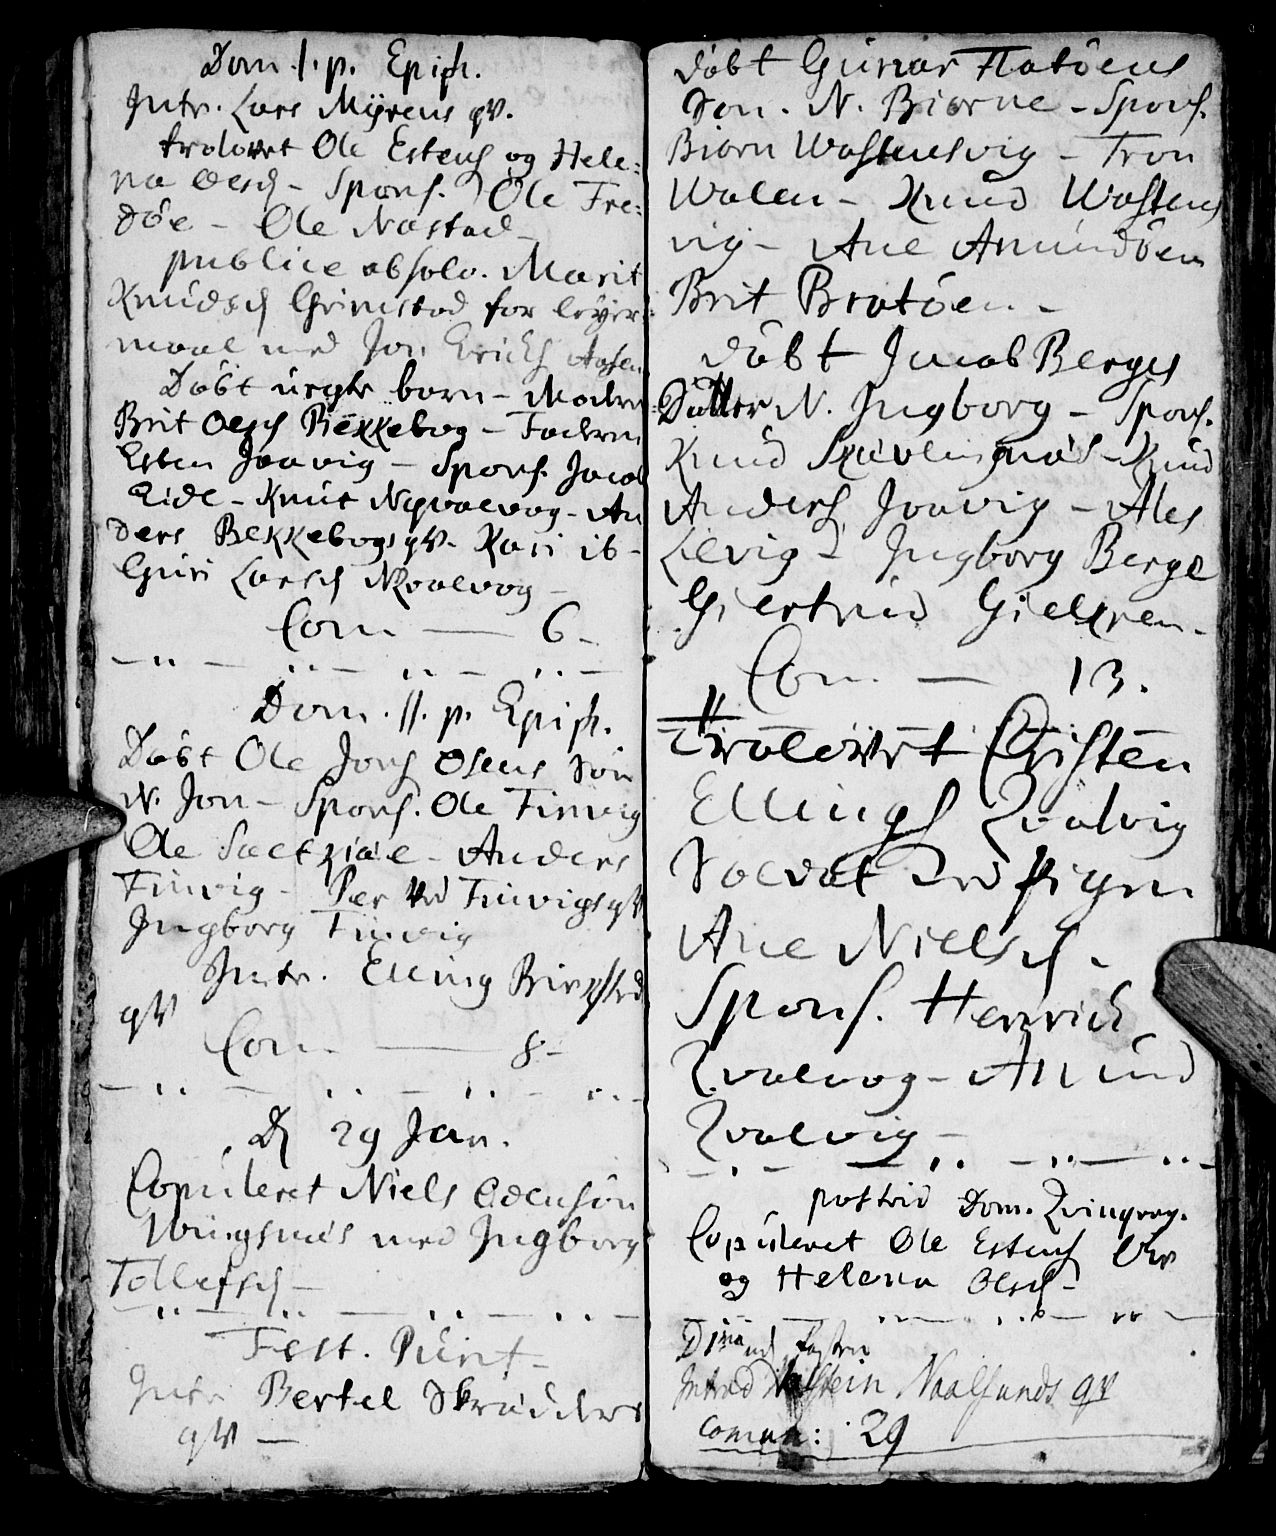 Dom. 1. p. Epiph.
Intr. Lars Mÿrens qv.
trolovet Ole Estens og Hele-
na Olesd - Spons. Ole Fre-
döe - Ole Nastad -
publice absolv. Marit
Knudsd Grimstad for leyer-
maal med Jon Erichs
Döbt uegte barn - Modren
Brit Olesd Bekkebog - Fadren
Esten Joavig - Spons. Jacob
Eide - Knut Nqvalvog - An
ders Bekkebogs qv. Kari ib -
Guri Larsd Nqvalvog -
Com. — 6 -
Dom. 11. p. Epiph.
Döbt Ole Jons Osens Sön
N. Jon - Spons. Ole Tinvig
Ole - Anders
Tinvig - Per Tinvigs qv
Ingborg Tinvig
Intr. Elling
qv
Com. — 8 -
D 29 Jan.
Copuleret Niels Odensön
Wÿngsnæs med Ingborg
Tollefsd -
Fest. Purif -
Intr Bertel Skrædders
qv —
döbt Gunar Flatöens
Sön. N. Biörne - Spons.
Biörn Wastensvig - Tron
Walen - Knud Wastens
vig - Ane Amundöen
Brit Bratöen -
döbt Jacob Berges
Datter N. Ingborg - Spons.
Knud - Knud
Anders Joavig - Ales
Lervig - Ingborg Berge
Giertrud
Com. — 13.
Trolovet Christen
Ellings Qvalvig
Soldat med pigen
Ane Nielsd -
Spons. Henrich
Qvalvog - Amund
Qvalvig -
postrid Dom. Qvinqvag.
Copuleret Ole Estens
og Helena Olesd -
fasten
Introd Naalsunds qv
Comun: 29